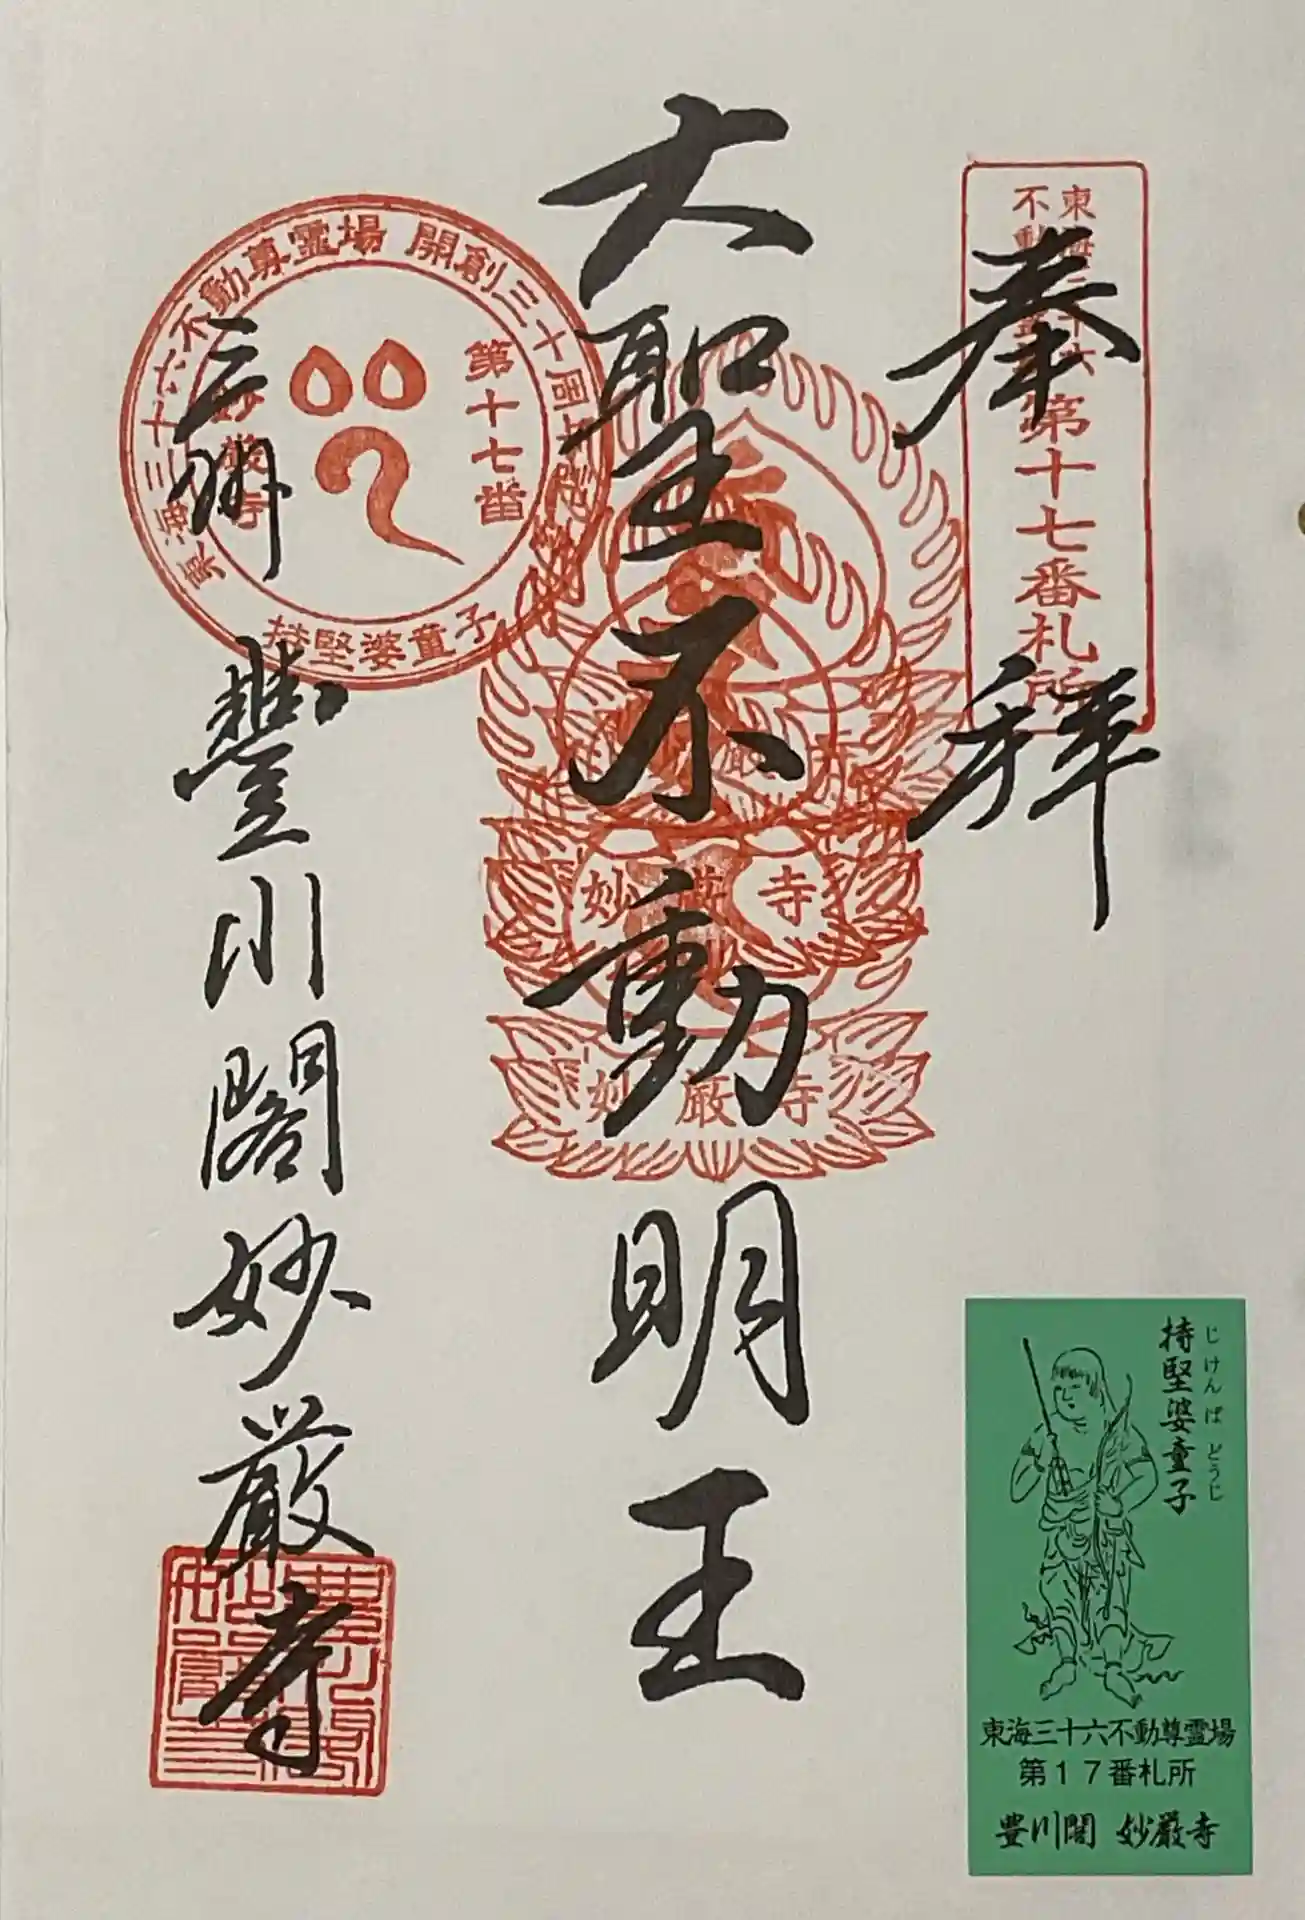 奉拝
東海三十六
不動尊霊場
第十七番札所
大聖不動明王
妙厳寺
妙厳寺
東海三十六不動尊霊場 開創三十周年記念
第十七番
妙厳寺
持堅婆童子
三州 豐川閣妙厳寺
持堅婆童子
じけんばどうじ
東海三十六不動尊霊場
第17番札所
豊川閣 妙厳寺